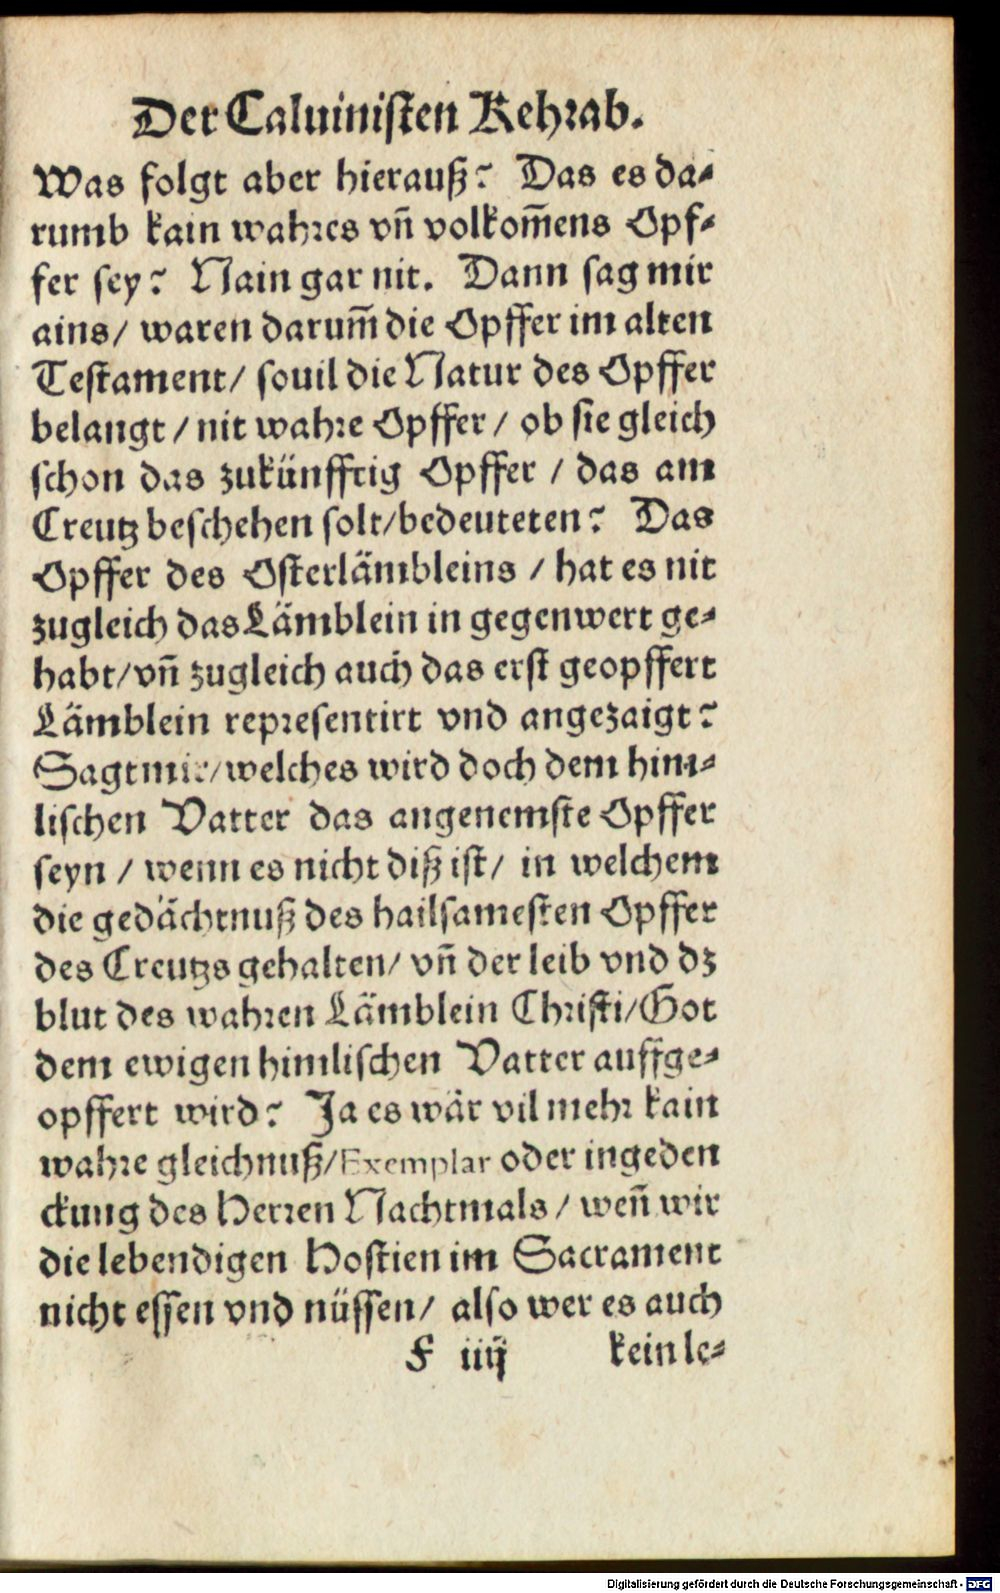 Der Caluinisten Kehrab.
Was folgt aber hierauß? Das es da-
rumb kain wahres vñ volkom̃ens Opf-
fer sey? Nain gar nit. Dann sag mir
ains/ waren darum̃ die Opffer im alten
Testament/ souil die Natur des Opffer
belangt/ nit wahre Opffer/ ob sie gleich
schon das zukünfftig Opffer/ das am
Creutz beschehen solt/bedeuteten? Das
Opffer des Osterlämbleins/ hat es nit
zugleich das Lämblein in gegenwert ge-
habt/vñ zugleich auch das erst geopffert
Lämblein representirt vnd angezaigt?
Sagt mir/welches wird doch dem him-
lischen Vatter das angenemste Opffer
seyn/ wenn es nicht diß ist/ in welchem
die gedächtnuß des hailsamesten Opffer
des Creutzs gehalten/ vñ der leib vnd dz
blut des wahren Lämblein Christi/Got
dem ewigen himlischen Vatter auffge-
opffert wird? Ja es wär vil mehr kain
wahre gleichnuß/Exemplar oder ingeden
ckung des Herren Nachtmals/ weñ wir
die lebendigen Hostien im Sacrament
nicht essen vnd nüssen/ also wer es auch
F iiij kein le-
Digitalisierung gefördert durch die Deutsche Forschungsgemeinschaft - DFG